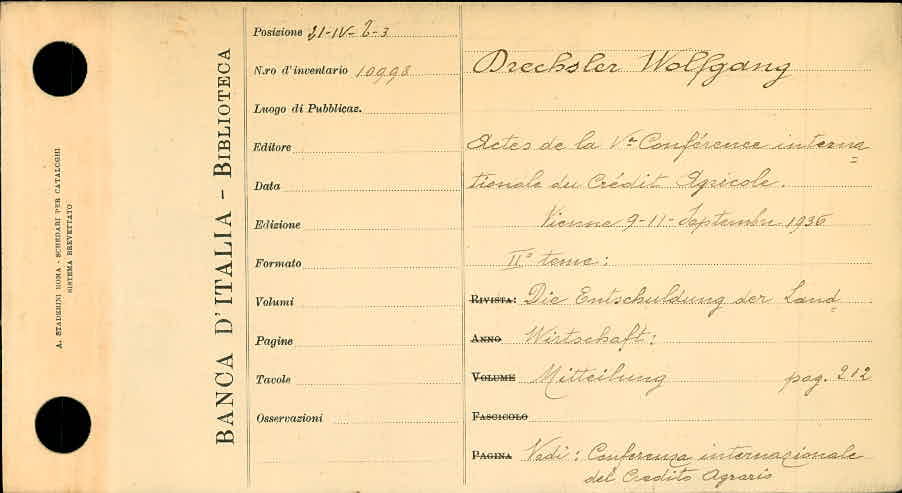 A. STADERINI ROMA - SCHEDARI PER CATALOGHI
SISTEMA BREVETTATO
BANCA D'ITALIA - BIBLIOTECA
Posizione 21-IV-6-3
N.ro d'inventario 10998
Luogo di Pubblicaz.
Editore
Data
Edizione
Formato
Volumi
Pagine
Tavole
Osservazioni
Drechsler Wolfgang
Actes de la Ve Conférence interna=
tionale du Crédit Agricole.
Vienne 9-11-Septembre 1936
II° teme:
RIVISTA: Die Entschuldung der Land=
ANNO Wirtschaft:
VOLUME Mitteilung pag. 212
FASCICOLO
PAGINA Vedi: Conferenza internazionale
del Credito Agrario